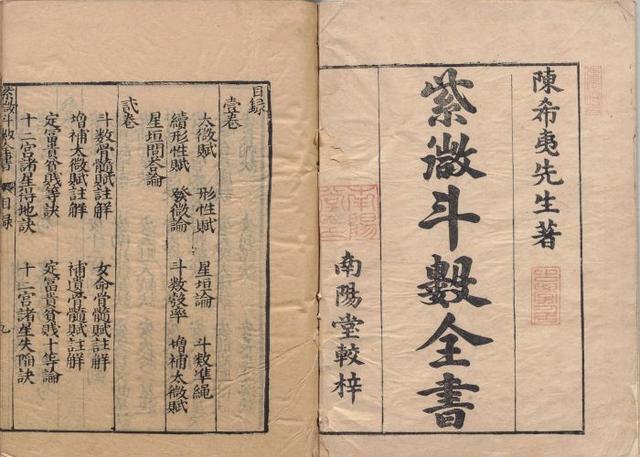 陳希夷先生著
紫微斗數全書
南陽堂較梓
南陽堂
目錄
壹卷
太微賦 形性賦 星垣論 斗数準繩
續形性賦 發微論 斗数彀率 增補太微賦
星垣問答論
貳卷
斗数骨髓賦註解 女命骨髓賦註解
增補太微賦註解 補遺骨髓賦註解
定冨貴貧賎等訣 定冨貴貧賎十等論
十二宮諸星得地訣 十二宮諸星失陥訣
紫微斗数全書 目录 九